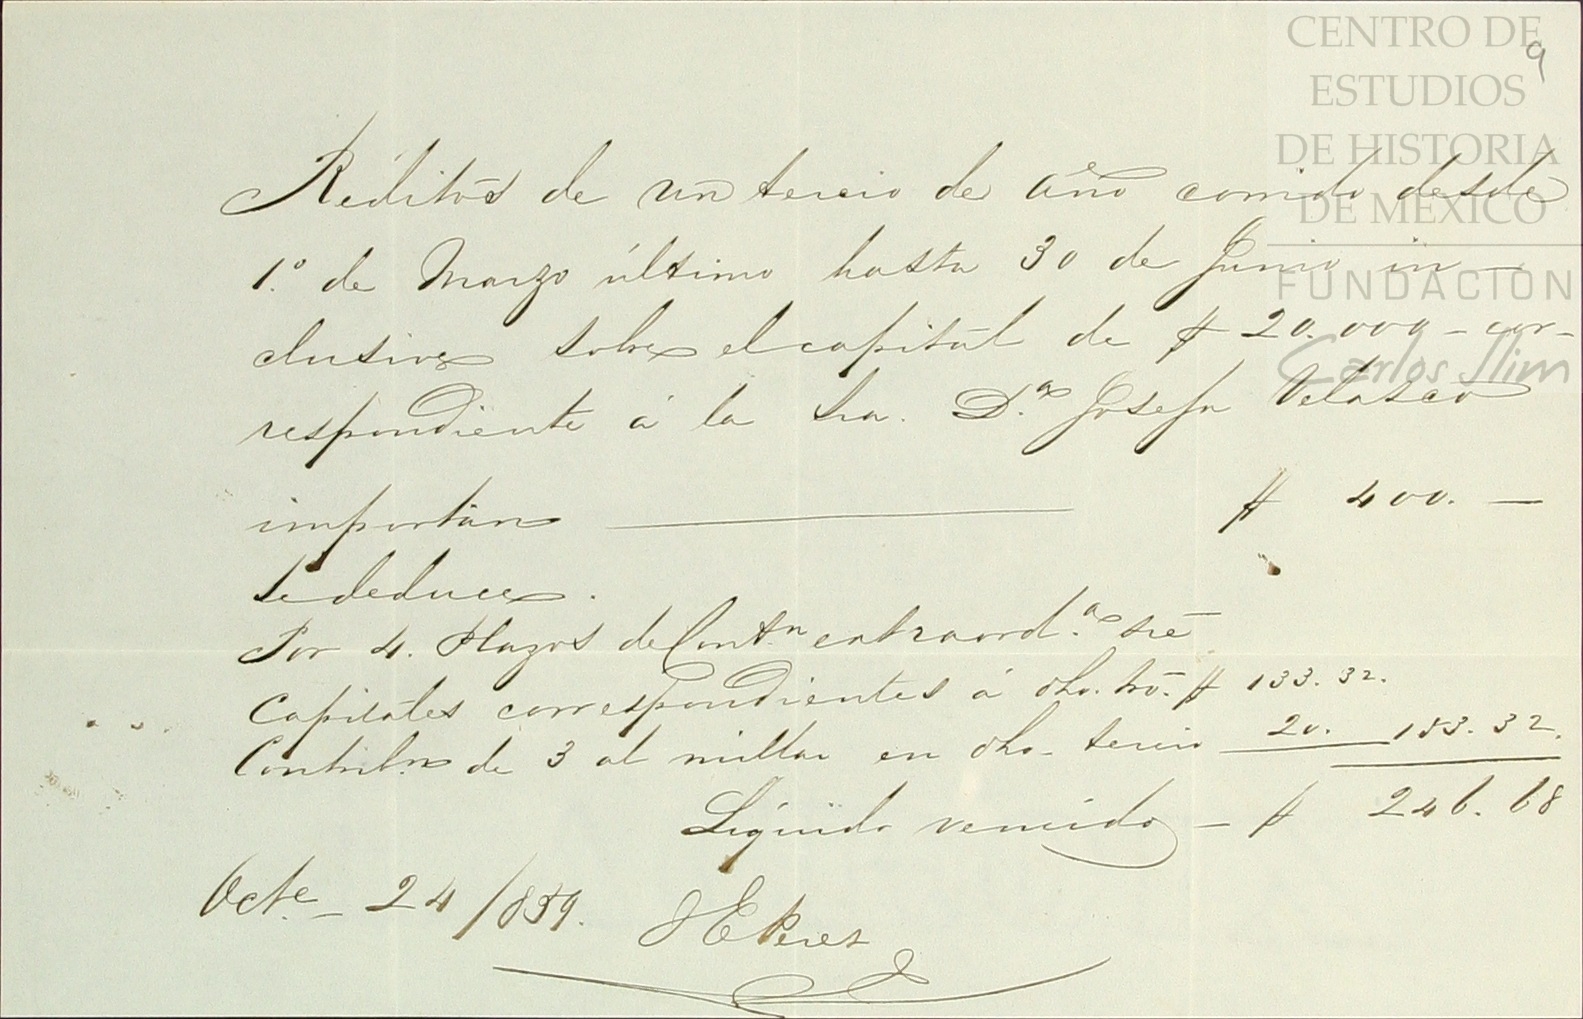 CENTRO DE
ESTUDIOS
DE HISTORIA
DE MEXICO
FUNDACION
Carlos Slim
9
Réditos de un tercio de año corrido desde
1.º de Marzo último hasta 30 de Junio in-
clusive sobre el capital de $ 20.000 - cor-
respondiente á la Sra. D.ª Josefa Velasco
importan $ 400. —
Se deduce.
Por 4. Plazos de Cont.n extraord.ª sre
Capitales correspondientes á dho. tro. $ 133.32.
Contrib.n de 3 al millar en dho. tercio 20. 153.32.
Liquido vencido — $ 246.68
Octe. — 24/859.
J E Perez